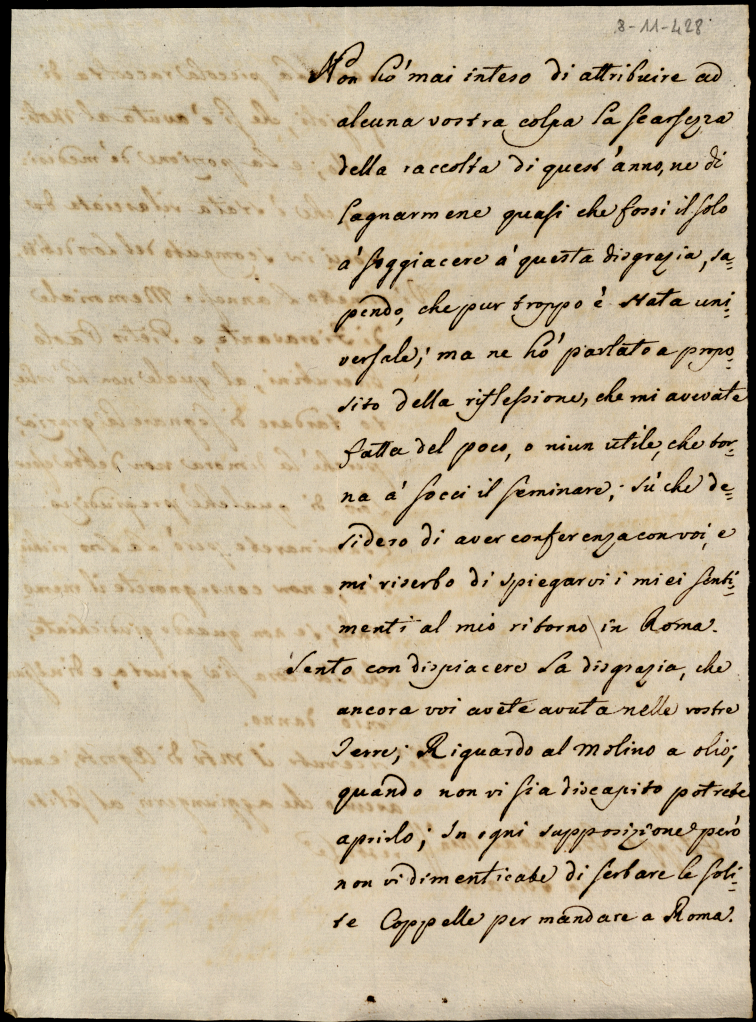 8-11-428
Non hó mai inteso di attribuire ad
alcuna vostra colpa la scarsezza
della raccolta di quest'anno, ne di
lagnarmene quasi che fossi il solo
á soggiacere á questa disgrazia, sa=
pendo, che pur troppo è stata uni=
versale; ma ne hó parlato a propo=
sito della riflessione, che mi avevate
fatta del poco, o niun utile, che tor=
na á socci il seminare; sú che de=
sidero di aver conferenza con voi, e
mi riserbo di spiegarvi i miei senti=
menti al mio ritorno in Roma.
Sento con dispiacere la disgrazia, che
ancora voi avete avuta nelle vostre
Terre; Riguardo al Molino a olio;
quando non vi sia discapito potrete
aprirlo; In ogni supposizione però
non vi dimenticate di serbare le soli=
te Coppelle per mandare a Roma.